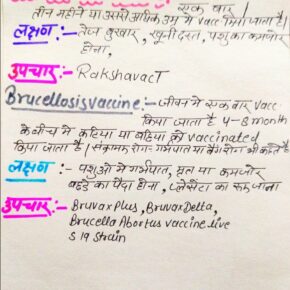 एक बार
तीन महीने या उससे अधिक उम्र में vacc किया जाता है।
लक्षण :- तेज बुखार, खूनी दस्त, पशु का कमजोर
होना,
उपचार :- RakshavacT
Brucellosis vaccine :- जीवन में एक बार vacc
किया जाता है 4-8 month
के बीच में कटिया या बछिया को vaccinated
किया जाता है। संक्रामक रोग गर्भपात या बैंग रोग भी कहते है
लक्षण :- पशुओं में गर्भपात, मृत या कमजोर
बछड़े का पैदा होना, प्लेसेंटा का रुक जाना
उपचार :- Bruvax Plus, Bruvax Delta,
Brucella Abortus vaccine live
S 19 strain